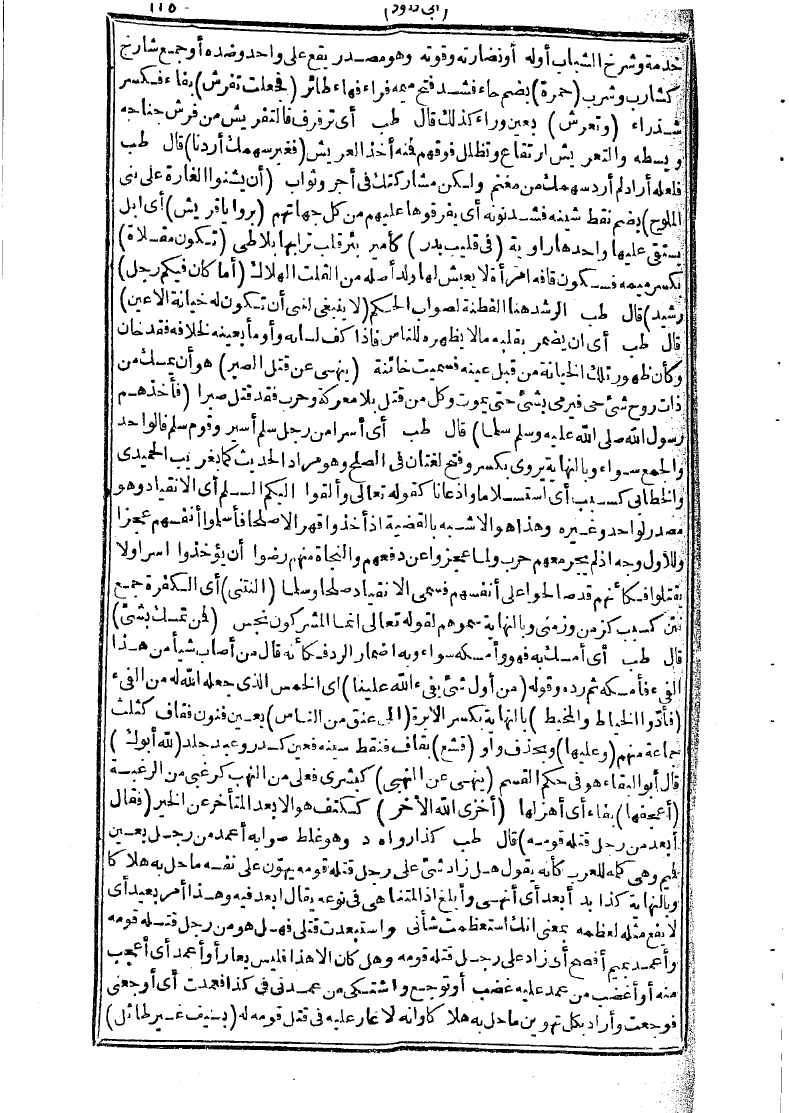 (ابى داود) ١١٥
خدمة وشرخ الشباب أوله أو نضارته وقوته وهو مصدر يقع على واحد وضده أو جمع شارخ
كشارب وشرب (حمرة) بضم حاء فشد فتح ميمه فراء فهاء طائر (فجعلت تفرش) بفاء فكسر
شد راء (وتعرش) بعين وراء كذلك قال طب أى ترفرف فالتفريش من فرش جناحه
وبسطه والتعريش ارتفاع وتظلل فوقهم فمنه أخذ العريش (فغير سهمك أردنا) قال طب
فلعله أراد لم أرد سهمك من مغنم ولكن مشاركتك فى أجر وثواب (أن يشنوا الغارة على بنى
الملوح) بضم نقط شينه فشد نونه أى يفرقوها عليهم من كل جهاتهم (بروايا قريش) أى ابل
يستقى عليها واحدها راوية (فى قليب بدر) كأمير بئر قلب ترابها بلاطى (تكون مقلاة)
بكسر ميمه فسكون قافه امرأة لا يعيش لها ولد أصله من القلت الهلاك (أما كان فيكم رجل
رشيد) قال طب الرشد هنا الفطنة لصواب الحكم (لا ينبغى لنبى أن تكون له خيانة الاعين)
قال طب أى ان يضمر بقلبه مالا يظهره للناس فاذا كف لسانه وأومأ بعينه لخلافه فقد خان
وكأن ظهور تلك الخيانة من قبل عينه فسميت خائنة (ينهى عن قتل الصبر) هو أن يمسك من
ذات روح شئ حى فيرمى بشئ حتى يموت وكل من قتل بلا معركة وحرب فقد قتل صبرا (فأخذهم
رسول الله صلى الله عليه وسلم سلما) قال طب أى أسرا من رجل سلم أسير وقوم سلم فالواحد
والجمع سواء وبالنهاية يروى بكسر وفتح لغتان فى الصلح وهو مراد الحديث كما بغريب الحميدى
والخطابى كسبب أى استسلاما واذعانا كقوله تعالى وألقوا اليكم السلم أى الانقياد وهو
مصدر لواحد وغيره وهذا هو الاشبه بالقضية اذ أخذوا قهرا لا صلحا فأسلموا أنفسهم عجزا
وللأول وجه اذ لم يجر معهم حرب ولما عجزوا عن دفعهم والنجاة منهم رضوا أن يؤخذوا اسرا ولا
يقتلوا فكأنهم قد صالحوا على أنفسهم فسمى الانقياد صلحا وسلما (النتنى) أى الكفرة جمع
نتن كسبب كزمن وزمنى وبالنهاية سموهم لقوله تعالى انما المشركون نجس (فمن تمسك بشئ)
قال طب أى أمسك به فهو وأمسكه سواء وبه اضمار الرد فكأنه قال من أصاب شيأ من هذا
الفىء فأمسكه ثم رده وقوله (من أول شئ يفىء الله علينا) اى الخمس الذى جعله الله له من الفىء
(فأدوا الخياط والمخيط) بالنهاية بكسر الابرة (الى عنق من الناس) بعين فنون فقاف كثلث
جماعة منهم (وعليها) وبحذف واو (قشع) بقاف فنقط سينه فعين كسدر وعبد جلد (لله أبوك)
قال أبو البقاء هو فى حكم القسم (ينهى عن النهبى) كبشرى فعلى من النهب كرغبى من الرغبة
(أعجفها) بفاء أى أهزلها (أخزى الله الأخر) ككتف هو الابعد المتأخر عن الخير (فقال
أبعد من رجل قتله قومه) قال طب كذا رواه د وهو غلط صوابه أعمد من رجل بعين
فميم وهى كلمة للعرب كأنه يقول هل زاد شئ على رجل قتله قومه يهوّن على نفسه ما حل به هلاكا
وبالنهاية كذا بد أبعد أى أنهى وأبلغ اذ المتناهى فى نوعه يقال ابعد فيه وهذا أمر بعيد أى
لا يقع مثله لعظمه بمعنى انك استعظمت شأنى واستبعدت قتلى فهل هو من رجل قتله قومه
وأعمد بميم أفصح أى زاد على رجل قتله قومه وهل كان الا هذا فليس بعار أو أعمد أى أعجب
منه أو أغضب من عمد عليه غضب أو توجع واشتكى من عمدنى فى كذا فعمدت أى أوجعنى
فوجعت وأراد بكل تهوين ما حل به هلاكا وانه لا عار عليه فى قتل قومه له (بسيف غير طائل)